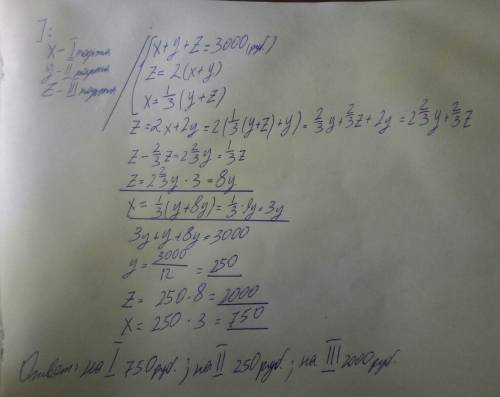 ]:
x - I партия
y - II партия
z - III партия
x+y+z=3000 (руб)
z=2(x+y)
x=1/3(y+z)
z=2x+2y=2(1/3(y+z)+y)=2/3y+2/3z+2y=2 2/3y+2/3z
z-2/3z=2 2/3y=1/3z
z=2 2/3y·3=8y
x=1/3(y+8y)=1/3·9y=3y
3y+y+8y=3000
y=3000/12=250
z=250·8=2000
x=250·3=750
Ответ: на I 750руб.; на II 250руб.; на III 2000руб.